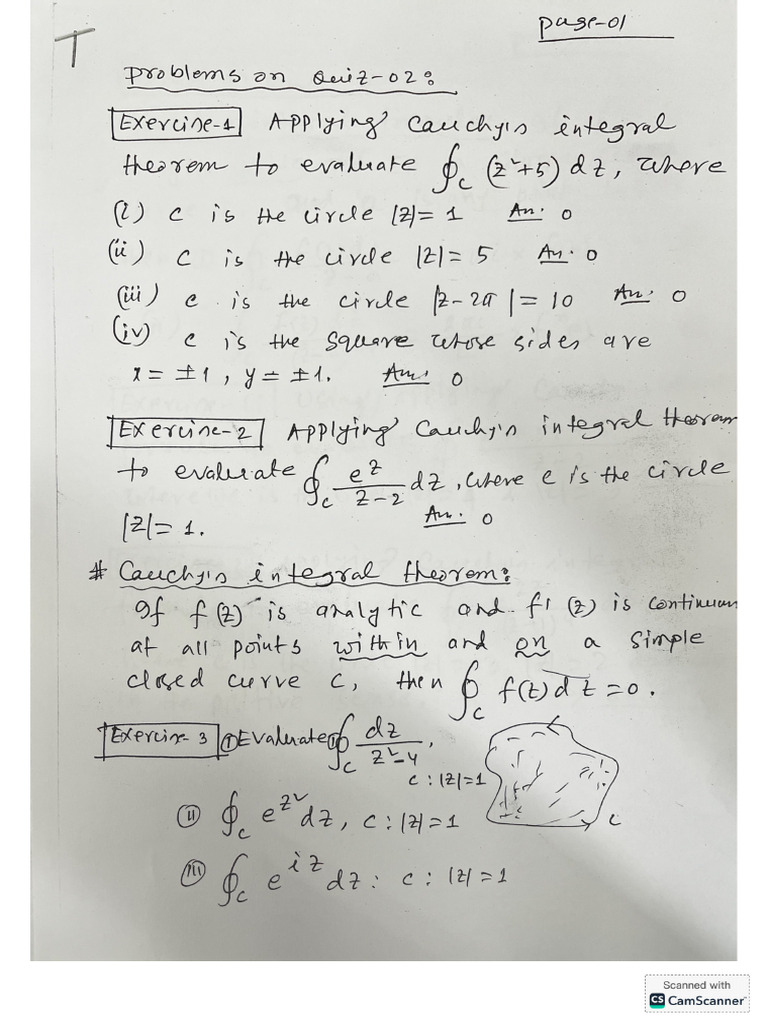 page-01
T
Problems on Quiz-02:
Exercise-1 Applying Cauchy's integral
theorem to evaluate ∮_C (z²+5) dz, where
(i) C is the circle |z|= 1 An: 0
(ii) C is the circle |z|= 5 An: 0
(iii) C is the circle |z-2i|= 10 An: 0
(iv) C is the square whose sides are
x = ±1, y = ±1. An: 0
Exercise-2 Applying Cauchy's integral theorem
to evaluate ∮_C e^z/(z-2) dz, where C is the circle
|z|= 1. An: 0
# Cauchy's integral theorem:
If f(z) is analytic and f'(z) is continuous
at all points within and on a simple
closed curve C, then ∮_C f(z)dz=0.
Exercise-3 (I) Evaluate ∮_C dz/(z²-4),
C:|z|=1
(II) ∮_C e^(z²) dz, C:|z|=1
C
(III) ∮_C e^(iz) dz: C:|z|=1
Scanned with
CS CamScanner